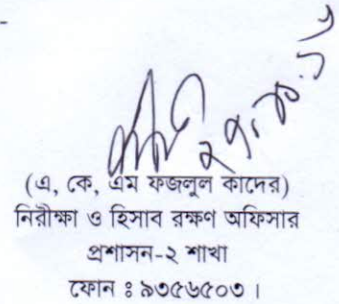 (এ, কে, এম ফজলুল কাদের)
নিরীক্ষা ও হিসাব রক্ষণ অফিসার
প্রশাসন-২ শাখা
ফোন ঃ ৯৩৫৬৫০৩ ।